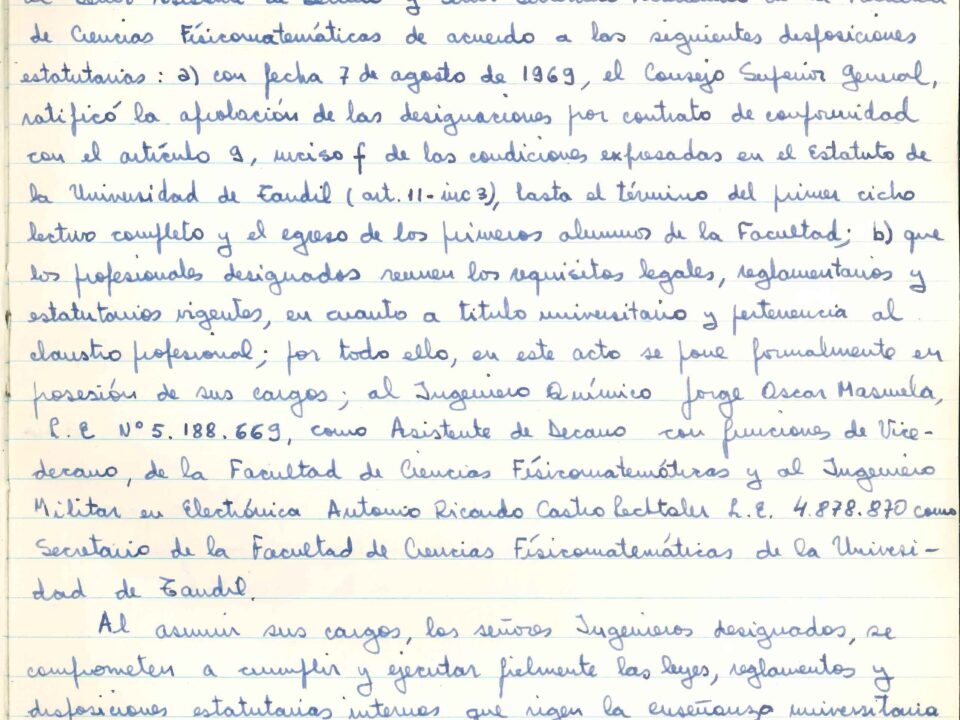 de Ciencias Físicomatemáticas de acuerdo a las siguientes disposiciones
estatutarias: a) con fecha 7 de agosto de 1969, el Consejo Superior General,
ratificó la aprobación de las designaciones por contrato de conformidad
con el artículo 9, inciso f de las condiciones expresadas en el Estatuto de
la Universidad de Tandil (art. 11-inc 3), hasta el término del primer ciclo
lectivo completo y el egreso de los primeros alumnos de la Facultad; b) que
los profesionales designados reunen los requisitos legales, reglamentarios y
estatutarios vigentes, en cuanto a titulo universitario y pertenencia al
claustro profesional; por todo ello, en este acto se pone formalmente en
posesión de sus cargos; al Ingeniero Químico Jorge Oscar
L.E Nº 5.188.669, como Asistente de Decano con funciones de Vice-
decano, de la Facultad de Ciencias Físicomatemáticas y al Ingeniero
Militar en Electrónica Antonio Ricardo Castro Lechtaler L.E. 4.878.870 como
Secretario de la Facultad de Ciencias Físicomatemáticas de la Universi-
dad de Tandil.
Al asumir sus cargos, los señores Ingenieros designados, se
comprometen a cumplir y ejecutar fielmente las leyes, reglamentos y
disposiciones estatutarias internas que rigen la enseñanza universitaria